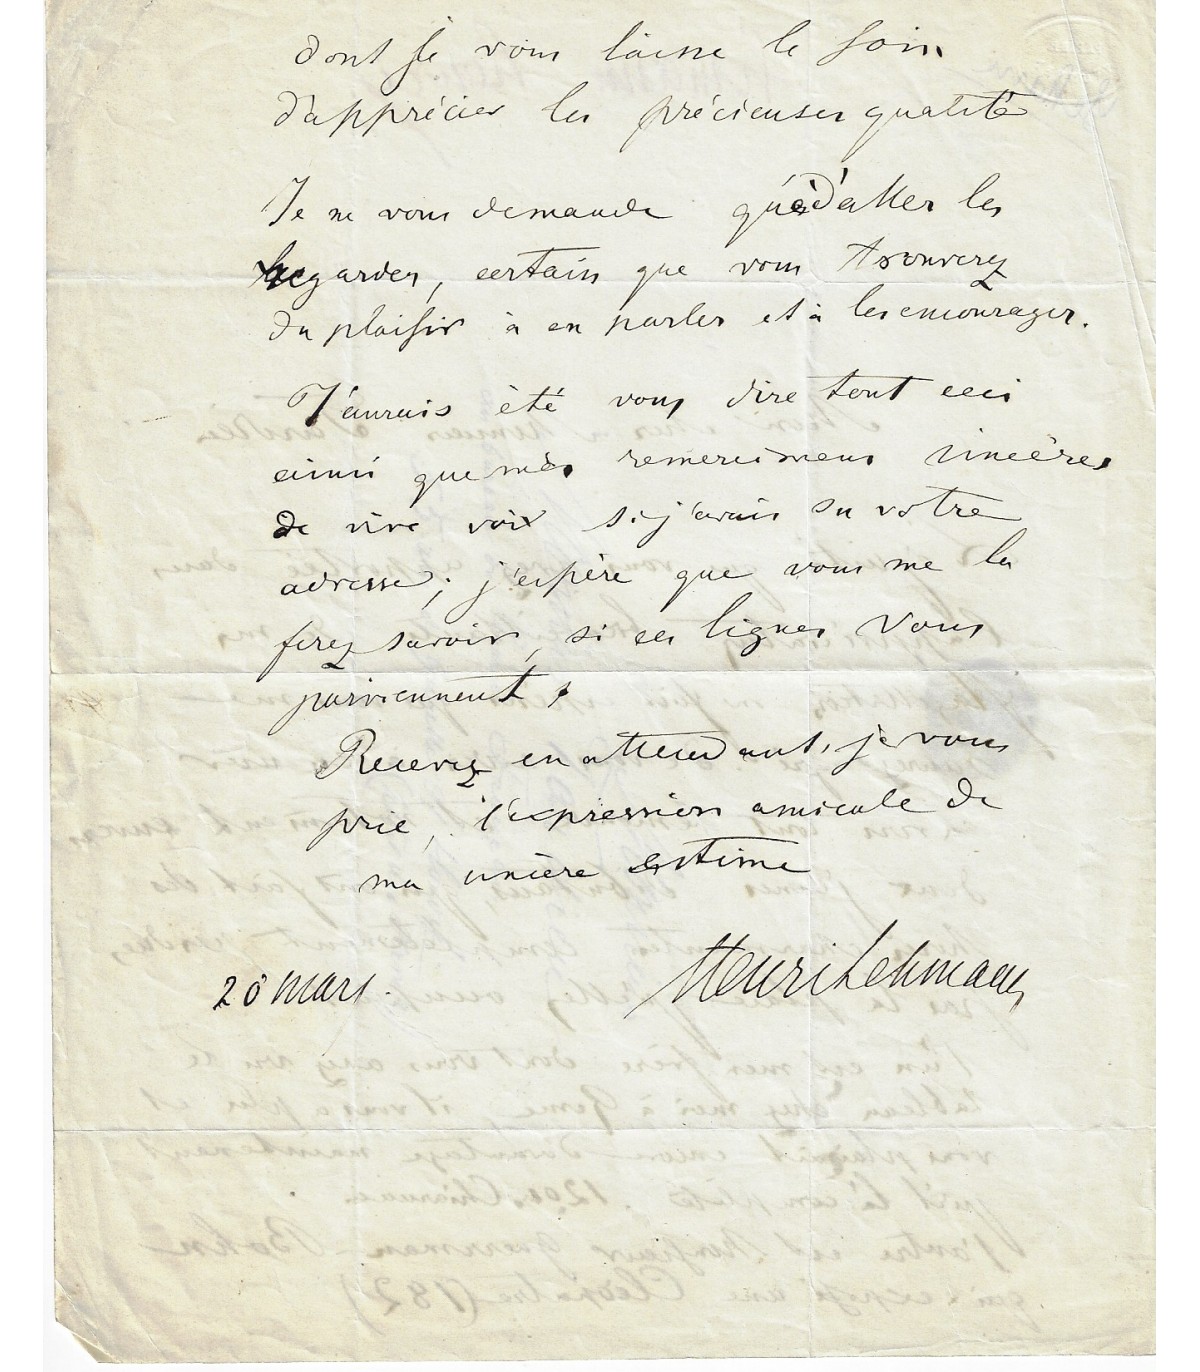 dont je vous laisse le soin
d'apprécier les précieuses qualités
Je ne vous demande qu'à d'aller les
regarder, certain que vous trouverez
du plaisir à en parler et à les encourager.
J'aurais été vous dire tout ceci
ainsi que mes remercimens sincères
de vive voix si j'avais su votre
adresse; j'espère que vous me la
ferez savoir, si ces lignes vous
parviennent.
Recevez en attendant, je vous
prie, l'expression amicale de
ma sincère estime
Henri Lehmann
20 mars.